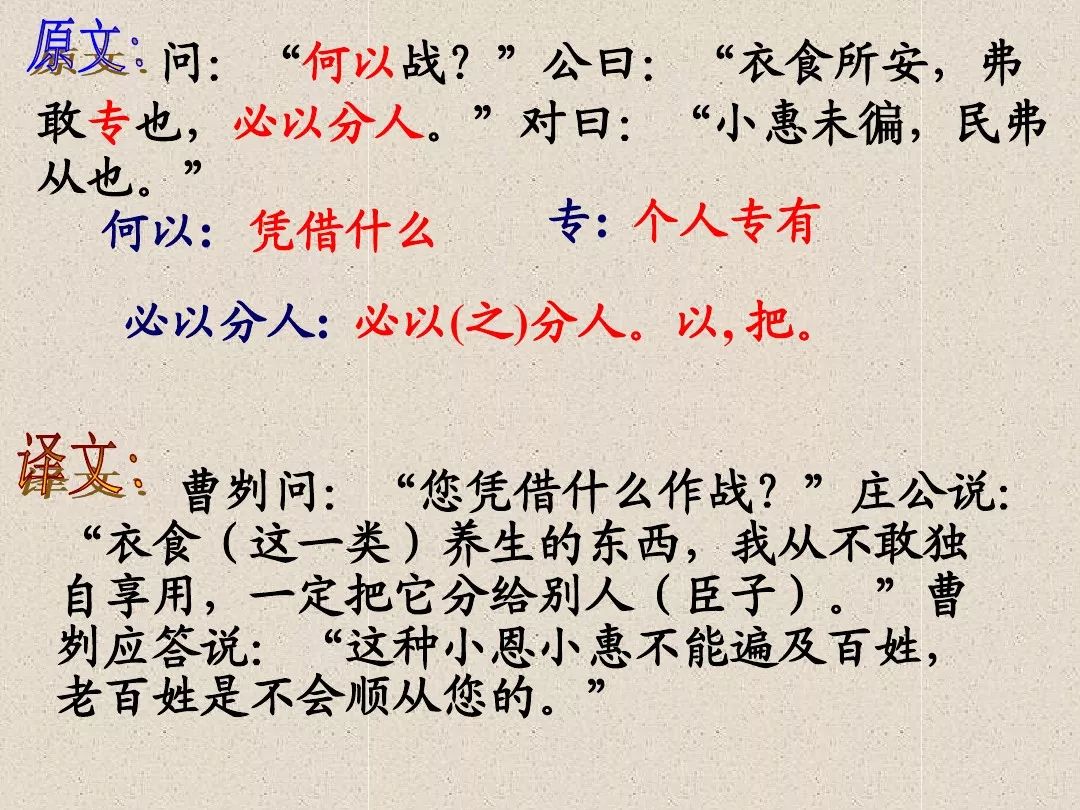 原文：问：“何以战？”公曰：“衣食所安，弗
敢专也，必以分人。”对曰：“小惠未徧，民弗
从也。”
何以：凭借什么 专：个人专有
必以分人：必以(之)分人。以,把。
译文：曹刿问：“您凭借什么作战？”庄公说：
“衣食（这一类）养生的东西，我从不敢独
自享用，一定把它分给别人（臣子）。”曹
刿应答说：“这种小恩小惠不能遍及百姓，
老百姓是不会顺从您的。”